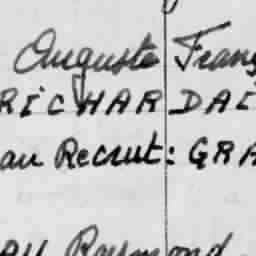 Auguste Franç
RICHARDAI
au Recrut: GRA
Raymond